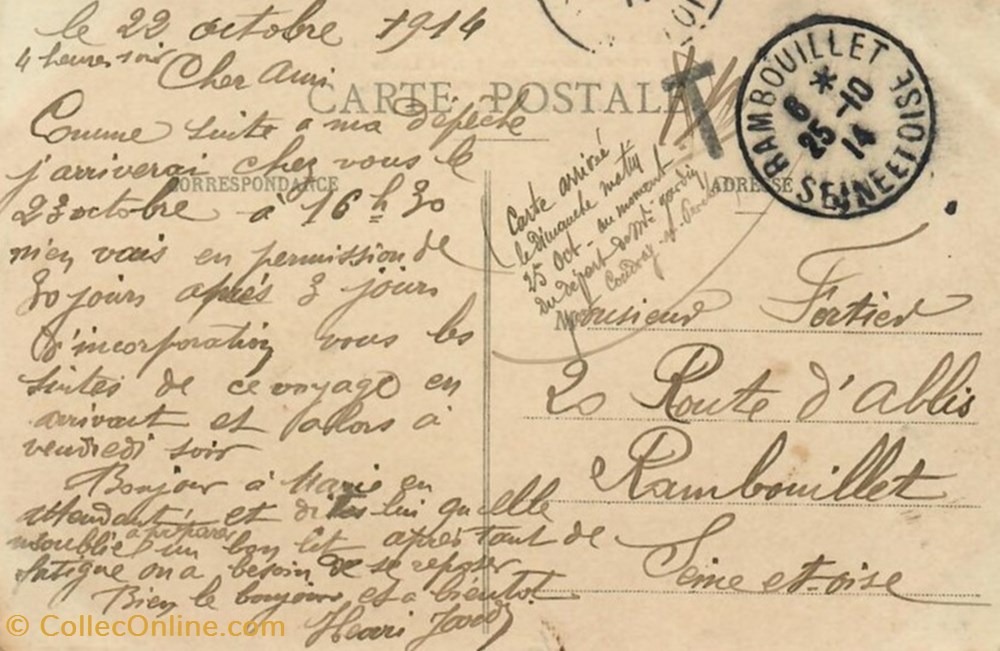 le 22 octobre 1914
4 heures soir
Cher Ami
CARTE POSTALE
T
RAMBOUILLET
6 * 25-10 14
SEINE ET OISE
CORRESPONDANCE
ADRESSE
Comme suite a ma dépêche
j'arriverai chez vous le
23 octobre à 16h30
m'en vais en permission de
30 jours après 3 jours
d'incorporation vous les
suites de ce voyage en
arrivant et alors à
vendredi soir
Bonjour à Marie en
attendant et dites lui qu'elle
n'oublie à préparer un bon lit après tant de
fatigue on a besoin de se reposer
Bien le bonjour et a bientot
Henri
Carte arrivée
le dimanche matin
25 Oct - au moment
du départ de Mr
Monsieur Fortier
20 Route d'Ablis
Rambouillet
Seine et-oise
© CollecOnline.com